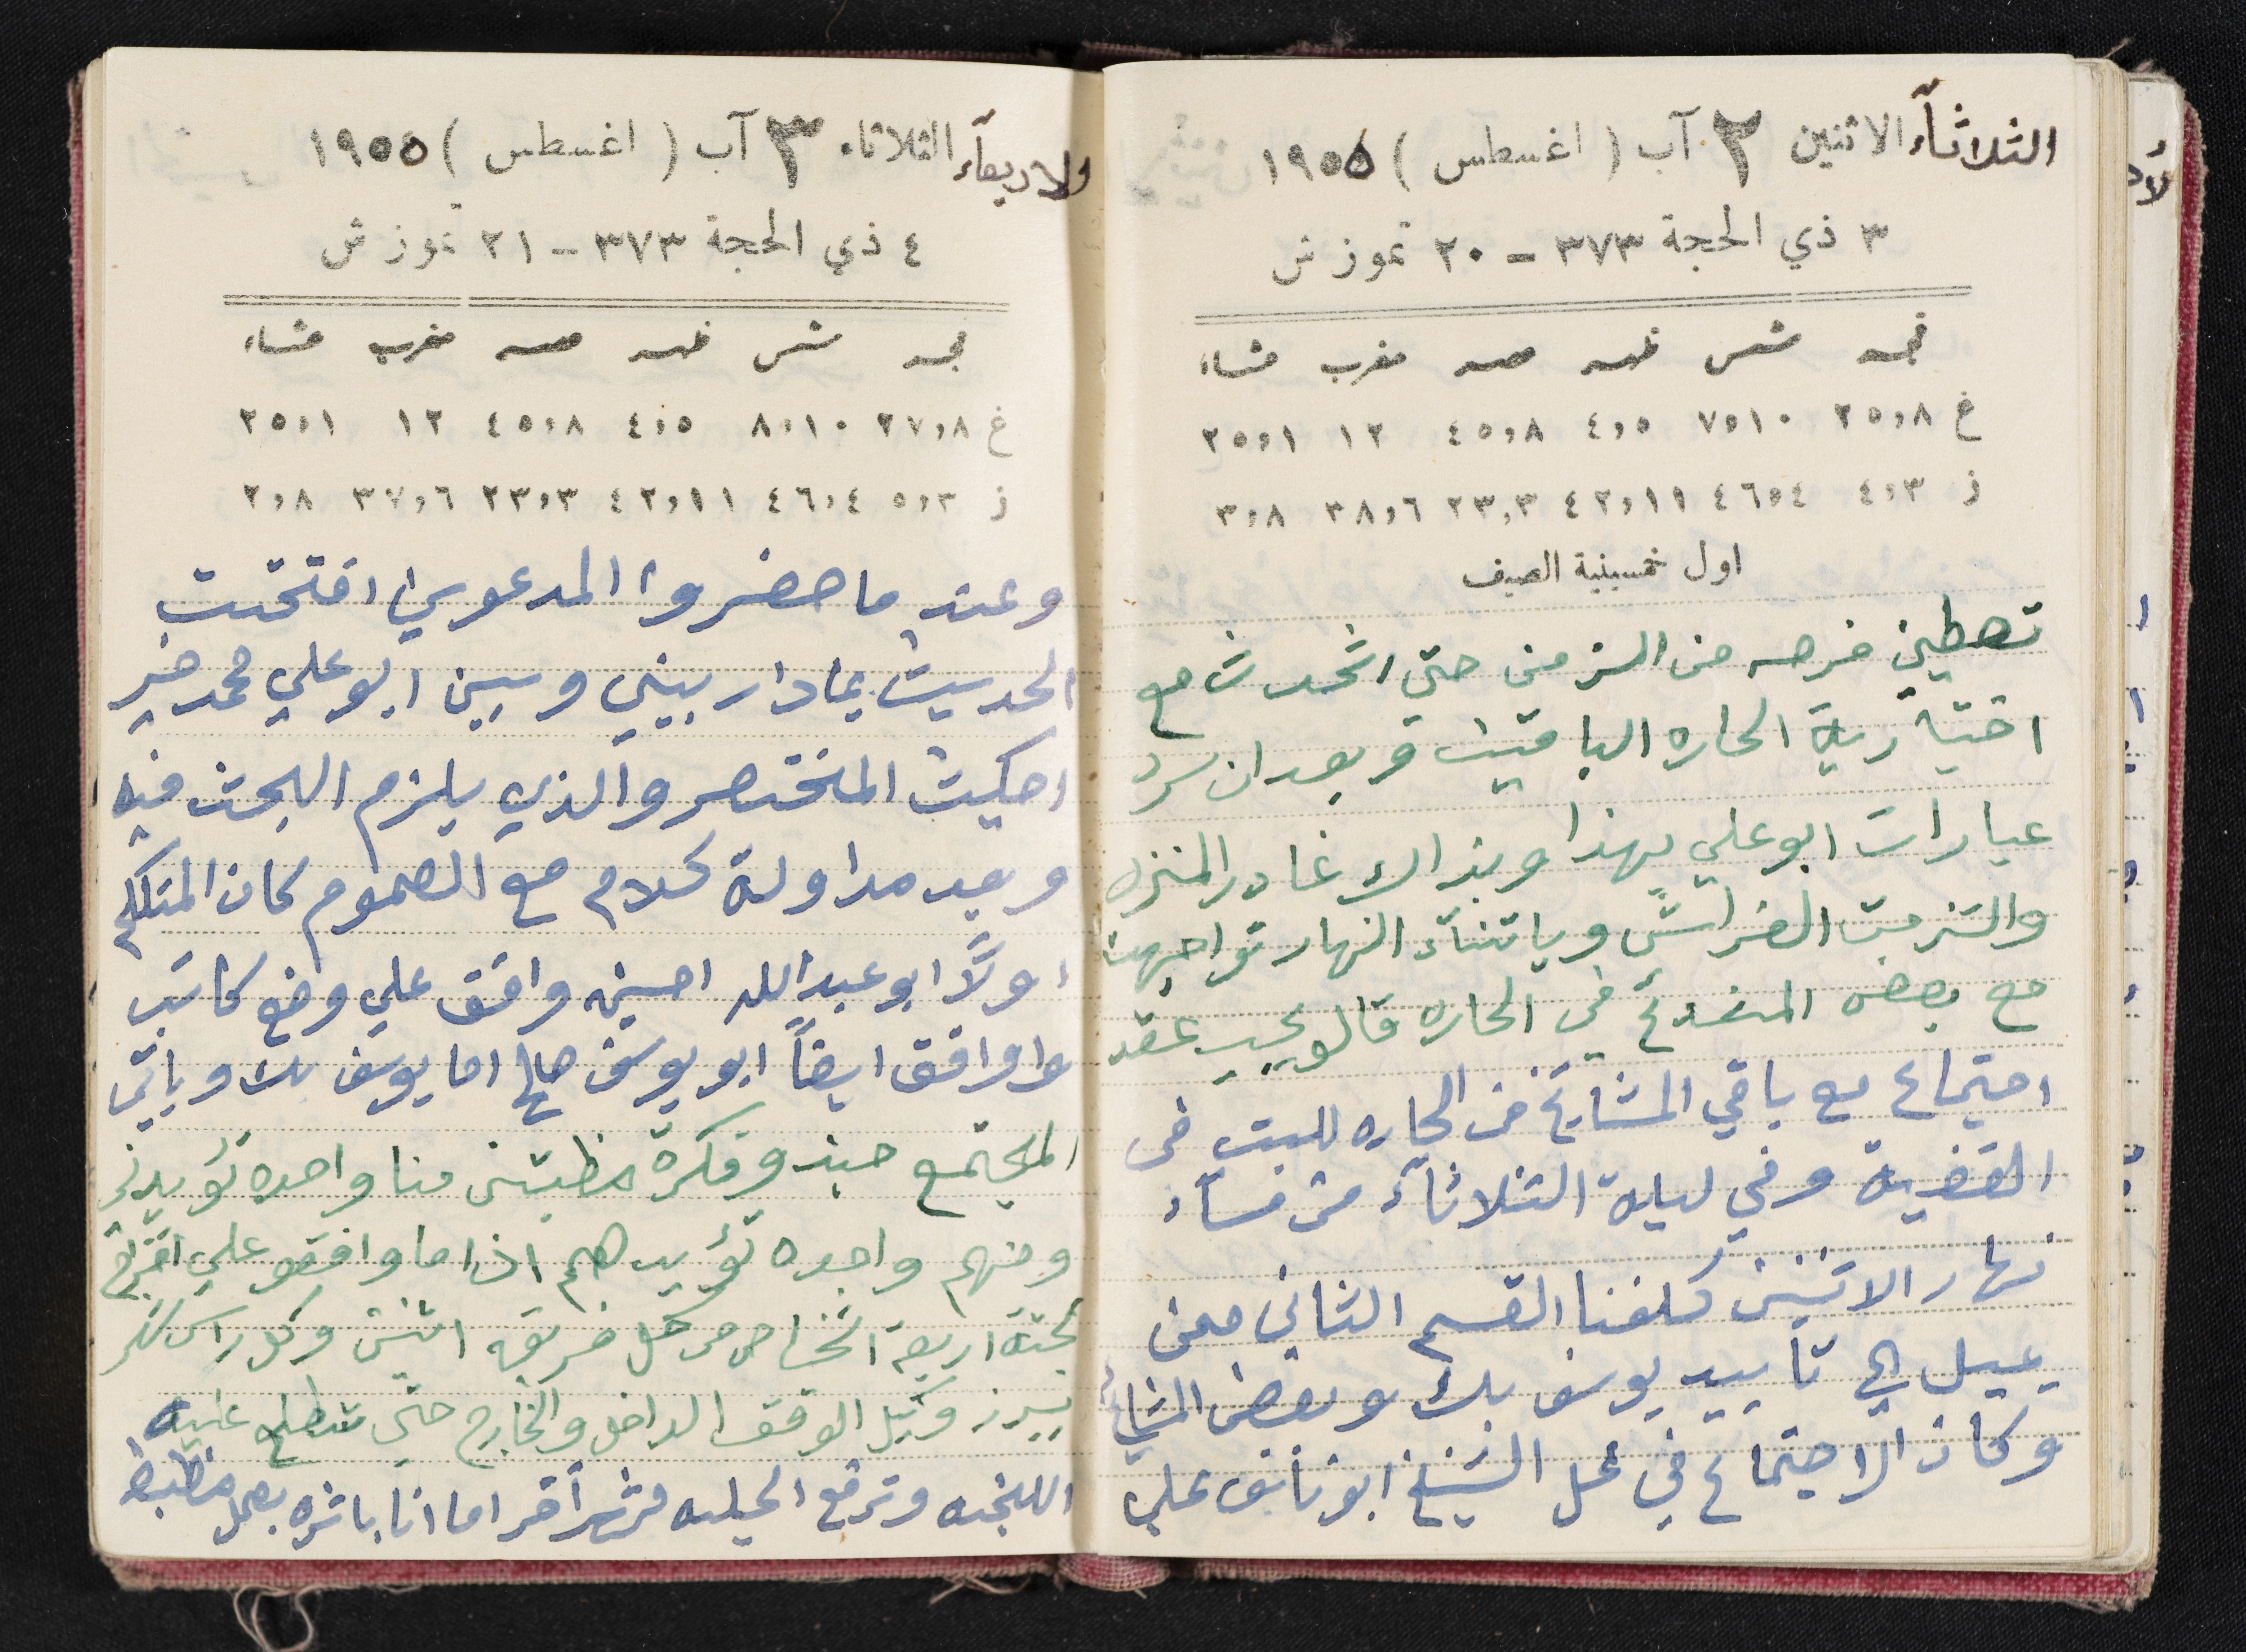 الثلاثاء الاثنين ٢ آب ( اغسطس ) ١٩٥٥
٣ ذي الحجة ٣٧٣ - ٢٠ تموز ش
فجر شمس ظهر عصر مغرب عشاء
غ ٢٥،٨ ٧،١٠ ٤،٥ ٤٥،٨ ١٢ ٢٥،١
ز ٤،٣ ٤٦،٤ ٤٢،١١ ٢٣،٣ ٣٨،٦ ٣،٨
اول خمسينية الصيف
تعطيني فرصه من الزمن حتى اتحدث مع
اختيارية الحاره الباقيين وبعد ان سرد
عبارات ابو علي بهذا وبذاك غادر المنزل
والتزمت الفراش وباثناء النهار تواجهت
مع بعض في الحاره قالو يجب عقد
اجتماع مع باقي المشايخ من الحاره للبت في
القضية وفي ليلة الثلاثاء من مساء
نهار الاثنين كلفنا القسم الثاني ممن
يميل الى تأييد يوسف بك وبعض المشايخ
وكان الاجتماع في محل الشيخ ابو نايف علي
الاربعاء الثلاثاء ٣ آب ( اغسطس ) ١٩٥٥
٤ ذي الحجة ٣٧٣ - ٢١ تموز ش
فجر شمس ظهر عصر مغرب عشاء
غ ٢٧،٨ ٨،١٠ ٤،٥ ٤٥،٨ ١٢ ٢٥،١
ز ٥،٣ ٤٦،٤ ٤٢،١١ ٢٣،٣ ٣٧،٦ ٢،٨
وعند ما حضروا المدعوين افتتحت
الحديث بما دار بيني وبين ابو علي محمد خير
احكيت المختصر والذي يلزم البحث فيه
وبعد مداولة كلام مع العموم كان المتكلم
اولاً ابو عبدالله احسين وافق على وضع كاتب
واوافق ايضاً ابو يوسف صالح اما يوسف بك وباقي
المجتمع حبذو فكرة مظبتين منا واحده تؤيدنى
ومنهم واحده تؤيدهم اذا ما وافقو على اقتراح
لجنة اربعة اشخاص من كل فريق اثنين وكل راس شهر
يبرز وكيل الوقف الداخل والخارج حتى تطلع عليه
اللجنه وترفع الحيله اما انا باشره بعمل مظبطه